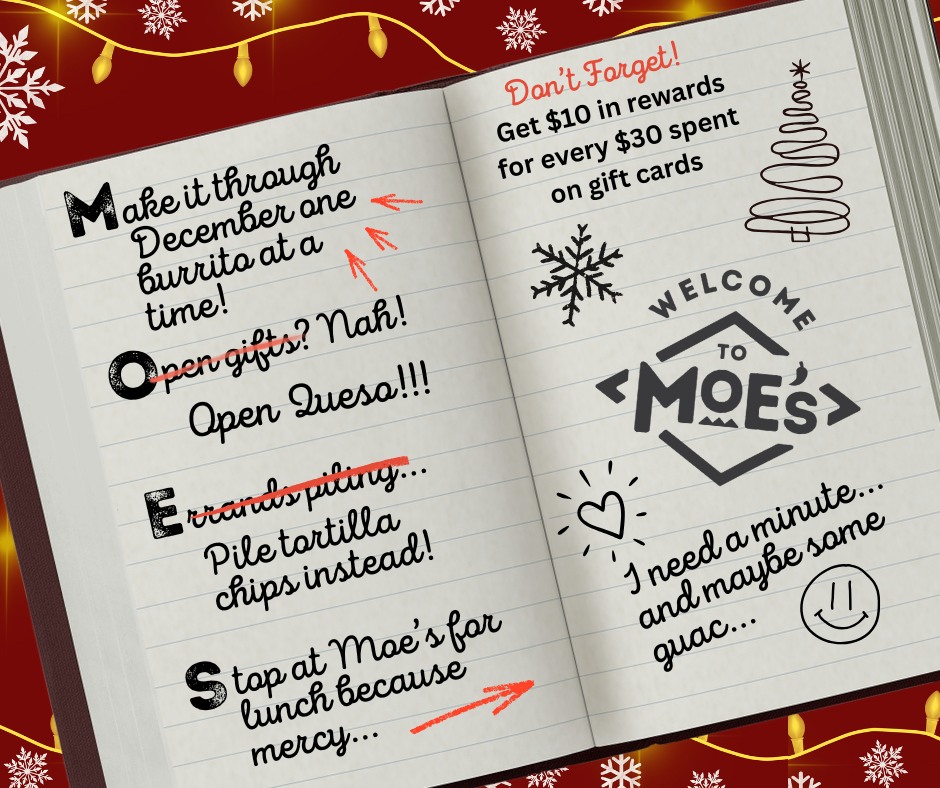 Make it through
December one
burrito at a
time!
Open gifts? Nah!
Open Queso!!!
Errands piling...
Pile tortilla
chips instead!
Stop at Moe's for
lunch because
mercy...
Don't Forget!
Get $10 in rewards
for every $30 spent
on gift cards
WELCOME
TO
MOE'S
I need a minute...
and maybe some
guac...